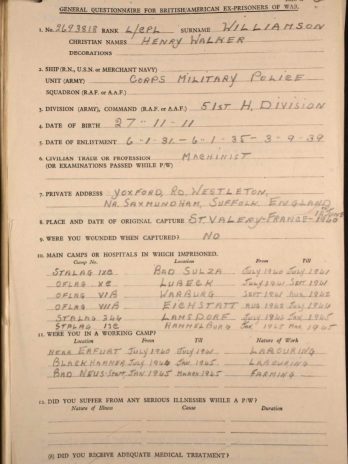 GENERAL QUESTIONNAIRE FOR BRITISH/AMERICAN EX-PRISONERS OF WAR.
1. No. 2693818 RANK L/CPL SURNAME WILLIAMSON
CHRISTIAN NAMES HENRY WALKER
DECORATIONS
2. SHIP (R.N., U.S.N. or MERCHANT NAVY)
UNIT (ARMY) CORPS MILITARY POLICE
SQUADRON (R.A.F. or A.A.F.)
3. DIVISION (ARMY), COMMAND (R.A.F. or A.A.F.) 51ST H. DIVISION
4. DATE OF BIRTH 27-11-11
5. DATE OF ENLISTMENT 6-1-31-6-1-35-3-9-39
6. CIVILIAN TRADE OR PROFESSION MACHINIST
(OR EXAMINATIONS PASSED WHILE P/W)
7. PRIVATE ADDRESS YOXFORD, RD. WESTLETON,
NA. SAXMUNDHAM, SUFFOLK ENGLAND
8. PLACE AND DATE OF ORIGINAL CAPTURE ST. VALERY-FRANCE- 1940
9. WERE YOU WOUNDED WHEN CAPTURED? NO
10. MAIN CAMPS OR HOSPITALS IN WHICH IMPRISONED.
Camp No. Location From Till
STALAG IXC BAD SULZA JULY 1940 JULY 1941
OFLAG XC LUBECK JULY 1941 SEPT 1941
OFLAG VIB WARBURG SEPT 1941 AUG 1942
OFLAG VIIB EICHSTATT AUG 1942 JULY
STALAG 344 LAMSDORF JULY JAN 1945
STALAG 13C HAMMELBURG JAN 1945 MAR 1945
11. WERE YOU IN A WORKING CAMP?
Location From Till Nature of Work
NEAR ERFURT JULY 1940 JULY 1941 LABOURING
BLACKHAMMER JULY JAN 1945 LABOURING
BAD NEUSTADT JAN 1945 MARCH 1945 FARMING
12. DID YOU SUFFER FROM ANY SERIOUS ILLNESSES WHILE A P/W?
Nature of Illness Cause Duration
(b) DID YOU RECEIVE ADEQUATE MEDICAL TREATMENT?